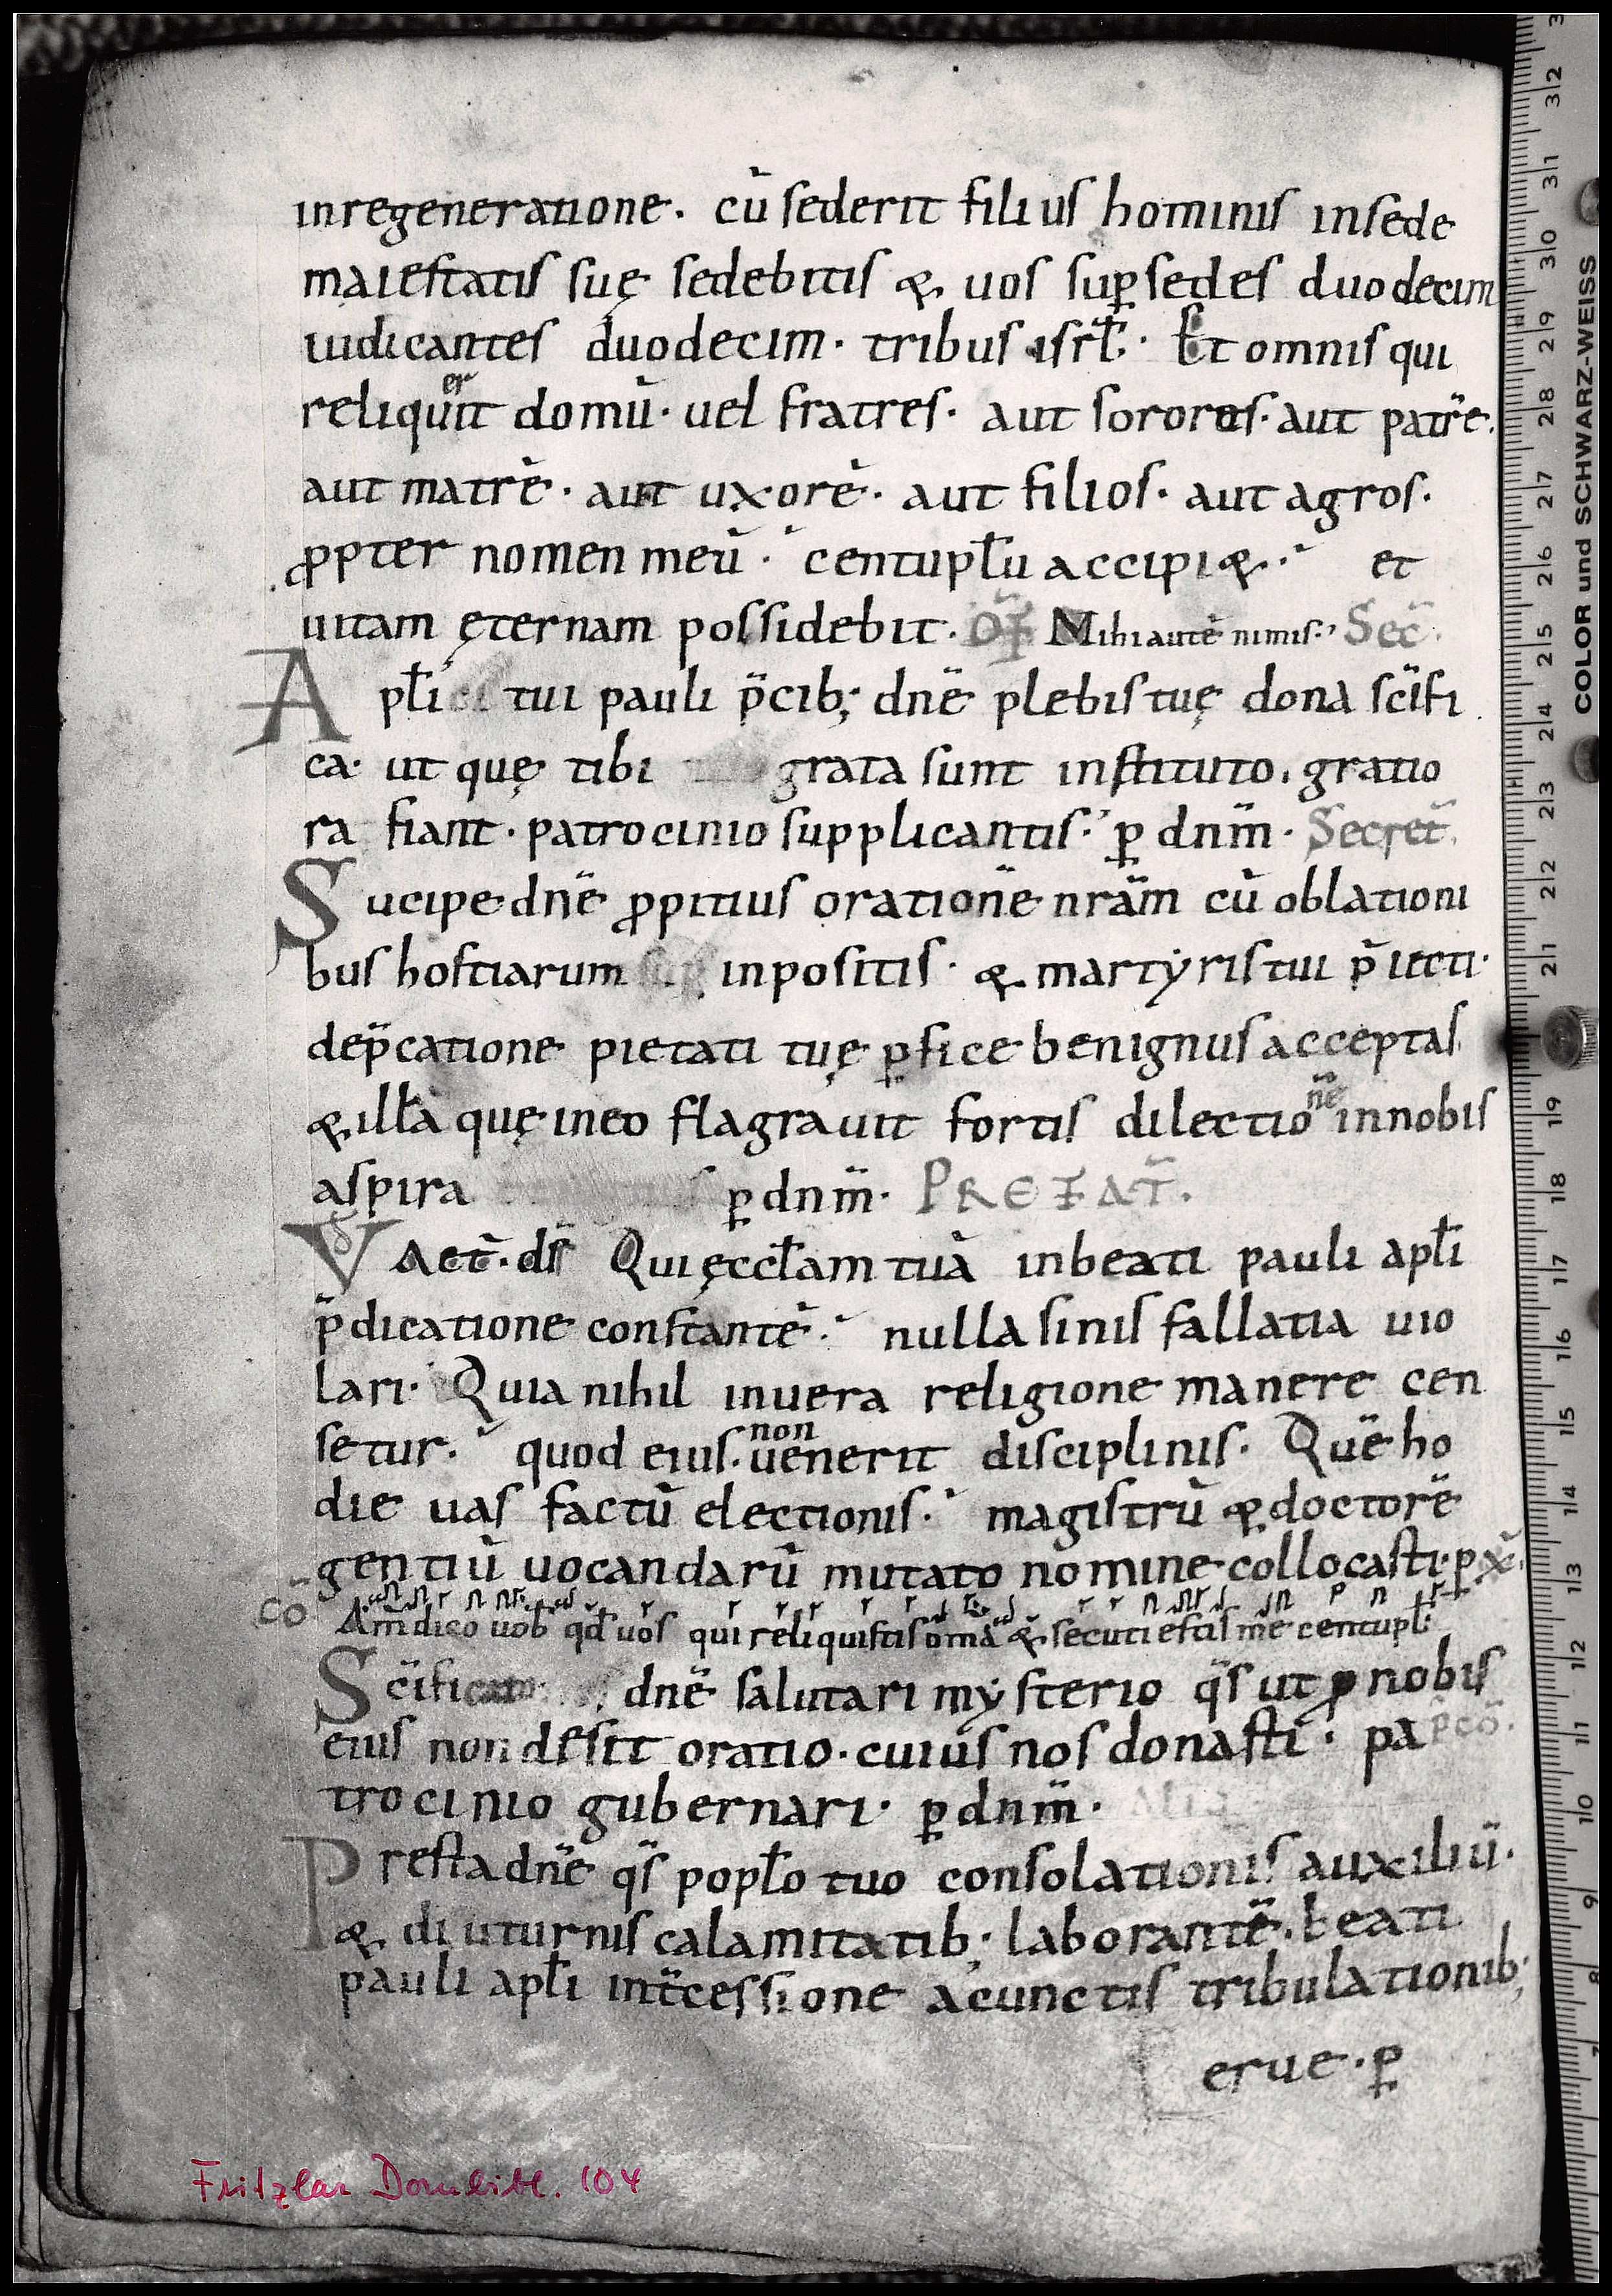 inregeneratione. cū sederit filius hominis insede
maiestatis suę sedebitis & uos sup̱ sedes duodecim
iudicantes duodecim. tribus isrł. Et omnis qui
reliquerit domū. uel fratres. aut sorores. aut patrē.
aut matrē. aut uxorē. aut filios. aut agros.
ꝓpter nomen meū. centupłu accipi&. et
uitam ęternam possidebit. OF̄ Mihi autē nimis. Sec̄.
Apłi tui pauli p̄cib; dnē plebis tuę dona sc̄ifi
ca. ut quę tibi grata sunt instituto. gratio
ra fiant. patrocinio supplicantis. ꝑ dnm̄. Secret̄.
Sucipe dnē ꝓpitius orationē nrām cū oblationi
bus hostiarum inpositis. & martyris tui p̄iecti.
dep̄catione pietati tuę ꝑfice benignus acceptas
& iłła quę in eo flagrauit fortis dilectionē in nobis
aspira ꝑ dnm̄. PREFAT̄.
VAet̄. ds̄ Qui ęccłam tuā in beati pauli apłi
p̄dicatione constantē. nulla sinis fallatia uio
lari. Quia nihil in uera religione manere cen
setur. quod eius. non uenerit disciplinis. Quē ho
die uas factū electionis. magistrū & doctorē
gentiū uocandarū mutato nomine collocasti. ꝑ xp̄.
CŌ Am̄ dico uob̄ qd̄ uos qui reliquistis om̄a & secuti estis me centupł.
Sc̄ifi dnē salutari mysterio qs̄ ut ꝓ nobis
eius non desit oratio. cuius nos donasti. pa p̄cō.
trocinio gubernari. ꝑ dnm̄. Alia
Presta dnē qs̄ popło tuo consolationis auxiliū.
& diuturnis calamitatib; laborantē. beati
pauli apłi int̄cessione a cunctis tribulationib;
erue. ꝑ
Fritzlar Dombibl. 104
COLOR und SCHWARZ-WEISS
3 32 31 30 29 28 27 26 25 24 23 22 21 19 18 17 16 15 14 13 12 11 10 9 8 7